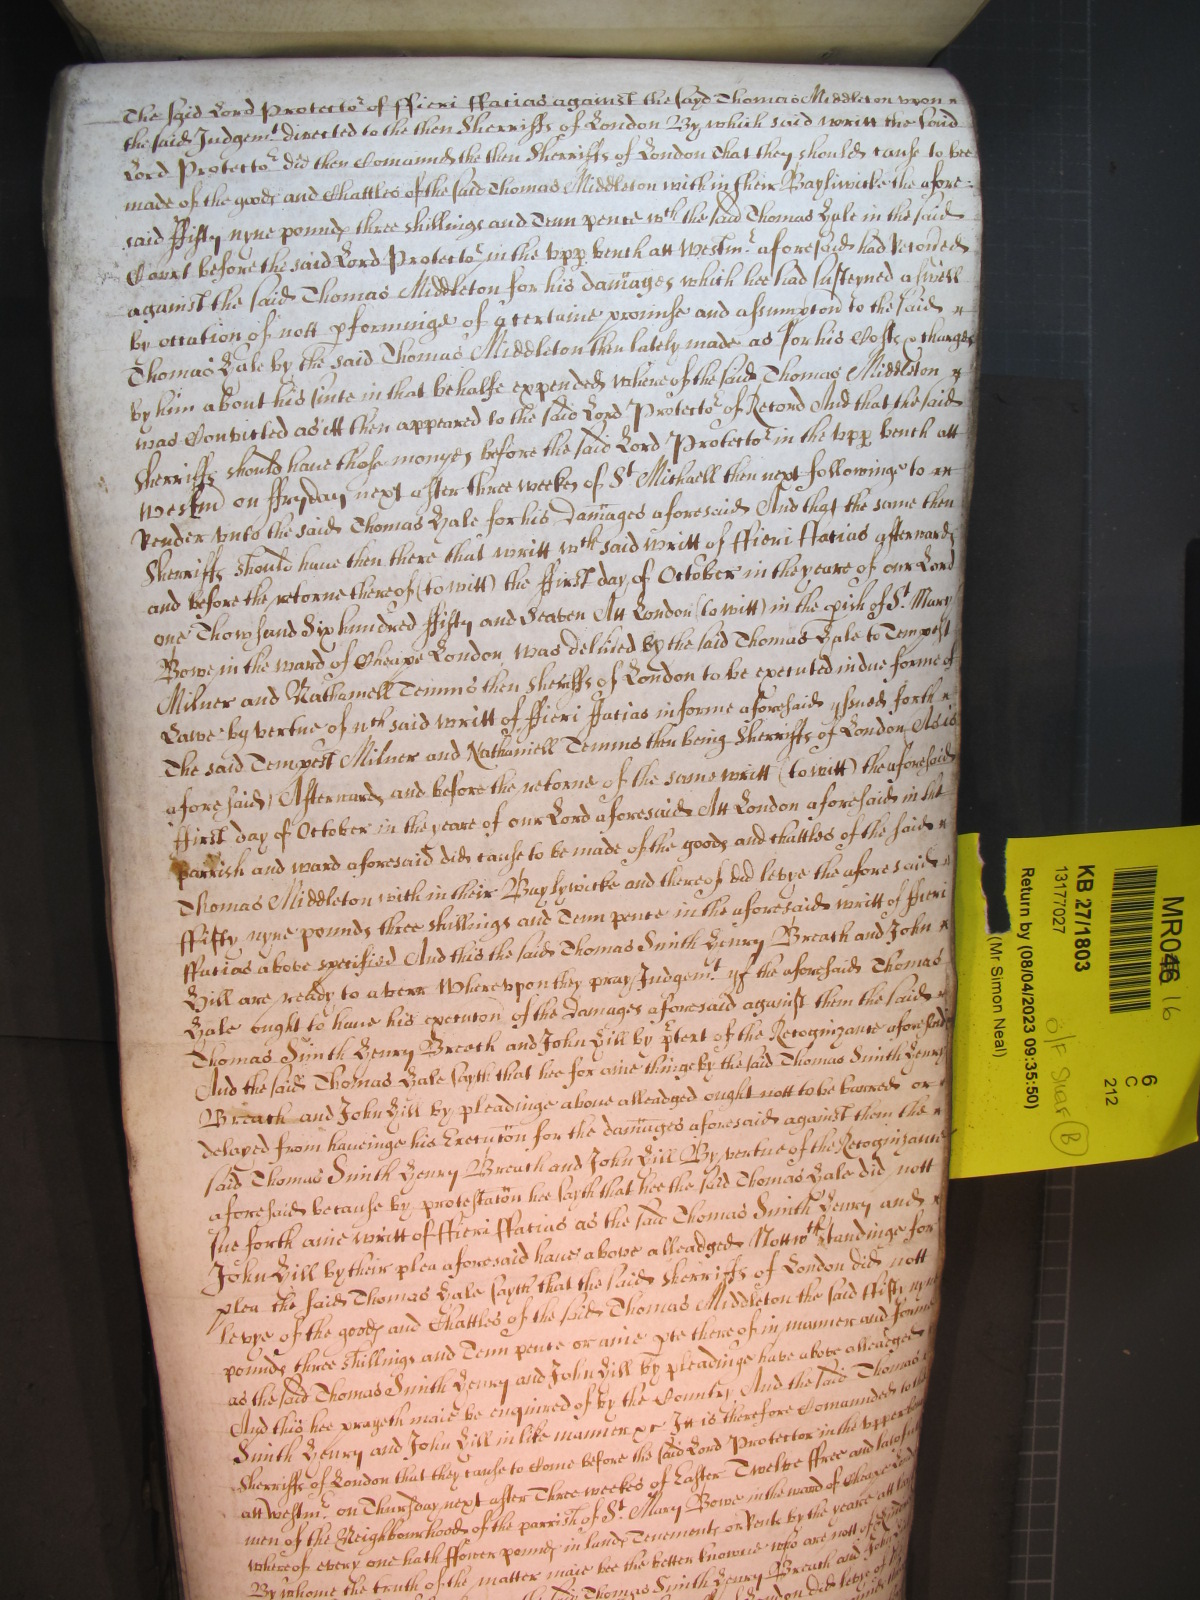 The said Lord Protector of ffieri ffacias against the sayd Thomas Middleton vpon
the said Judgemt directed to the then Sherriffs of London By which said writt the said
Lord Protector did then Comannd the then Sherriffs of London That they should cause to bee
made of the goods and Chattles of the said Thomas Middleton with in their Bayliwicke the afore-
said ffifty nyne pounds three shillings and Tenn pence wch the said Thomas Hale in the said
Court before the said Lord Protector in the vpp bench att Westmr aforesaid had Recoued
against the said Thomas Middleton for his damages which hee had susteyned aswell
by occation of nott pforminge of a certaine promise and assumpcon to the said
Thomas Hale by the said Thomas Middleton then lately made as for his Costs & charges
by him about his suite in that behalfe expended whereof the said Thomas Middleton
was Convicted as itt then appeared to the said Lord Protector of Record And that the said
Sherriffs should haue those monyes before the said Lord Protector in the vpp bench att
Westmr on ffryday next after three weekes of St Michaell then next followinge to
Render vnto the said Thomas Hale for his Damages aforesaid And that the same then
Sherriffs should haue then there that writt wch said writt of ffieri ffacias afterwards
and before the retorne thereof (to witt) the ffirst day of October in the yeare of our Lord
one Thowsand Six hundred ffifty and Seaven Att London (to witt) in the pish of St Mary
Bowe in the ward of Cheape London was deliued by the said Thomas Hale to Tempest
Milner and Nathaniell Temms then sheriffs of London to be executed in due forme of
Lawe by vertue of wch said writt of ffieri ffacias in forme aforesaid yssued forth
The said Tempest Milner and Nathaniell Temms then being Sherriffs of London As is
aforesaid) Afterwards and before the retorne of the same writt (to witt) the aforesaid
ffirst day of October in the yeare of our Lord aforesaid Att London aforesaid in the
parrish and ward aforesaid did cause to be made of the goods and chattles of the said
Thomas Middleton with in their Baylywicke and thereof did levye the aforesaid
ffiffty nyne pounds three shillings and Tenn pence in the aforesaid writt of ffieri
ffacias above specified And this the said Thomas Smith Henry Breach and John
Hill are ready to averr Wherevpon they pray Judgemt yf the aforesaid Thomas
Hale ought to haue his execucon of the Damages aforesaid against them the said
Thomas Smith Henry Breach and John Hill by ptext of the Recognizance aforesaid
And the said Thomas Hale sayth that hee for anie thinge by the said Thomas Smith Henry
Breach and John Hill by pleadinge aboue alleadged ought nott to be barred or
delayed from haueinge his Execucon for the damages aforesaid against them the
said Thomas Smith Henry Breach and John Hill By vertue of the Recognizance
aforesaid because by protestacon hee sayth that hee the said Thomas Hale did nott
sue forth anie writt of ffieri ffacias as the said Thomas Smith Henry and
John Hill by their plea aforesaid haue above alleadged Nottwthstandinge for
plea the said Thomas Hale sayth that the said Sherriffs of London did nott
levye of the goods and Chattles of the said Thomas Middleton the said ffifty nyne
pounds three shillings and Tenn pence or anie pte there of in manner and forme
as the said Thomas Smith Henry and John Hill by pleadinge have above alleadged
And this hee prayeth maie be enquired of by the Country And the said Thomas
Smith Henry and John Hill in like manner &c Itt is therefore Comannded to the
Sherriffs of London that they cause to Come before the said Lord Protector in the vpper bench
att westmr on Thursday next after Three weekes of Easter Twelve ffree and lawfull
men of the Neighbourhood of the parrish of St Mary Bowe in the ward of Cheape London
whereof every one hath ffower pounds in lands Tenements or Rents by the yeare att least
By whome the truth of the matter maie bee the better knowne who are nott of
Thomas Smith Henry Breach and John
London did levye of
MR046 16
KB 27/1803
13177027
Return by (08/04/2023 09:35:50)
(Mr Simon Neal)
6
C
212
B